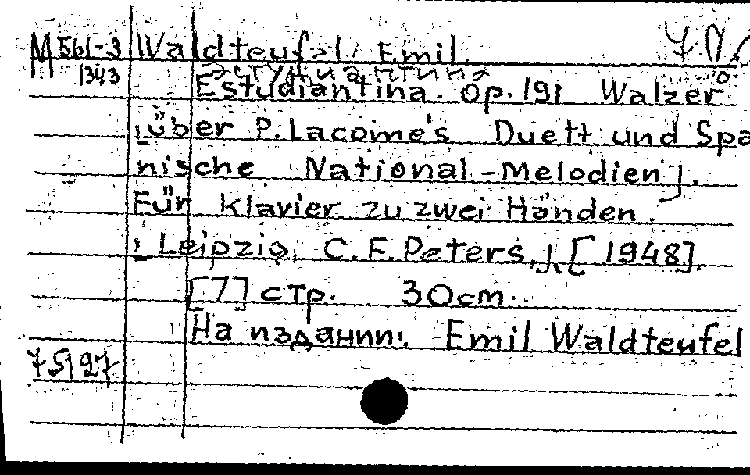 М 561-3 Waldteufel, Emil.
1343 Эстудиантина
Estudiantina. Op. 191 Walzer
[über P. Lacome's Duett und Spa
nische National-Melodien].
Für Klavier zu zwei Händen.
Leipzig, C. F. Peters, [1948].
[7] стр. 30cm.
На издании: Emil Waldteufel
75127